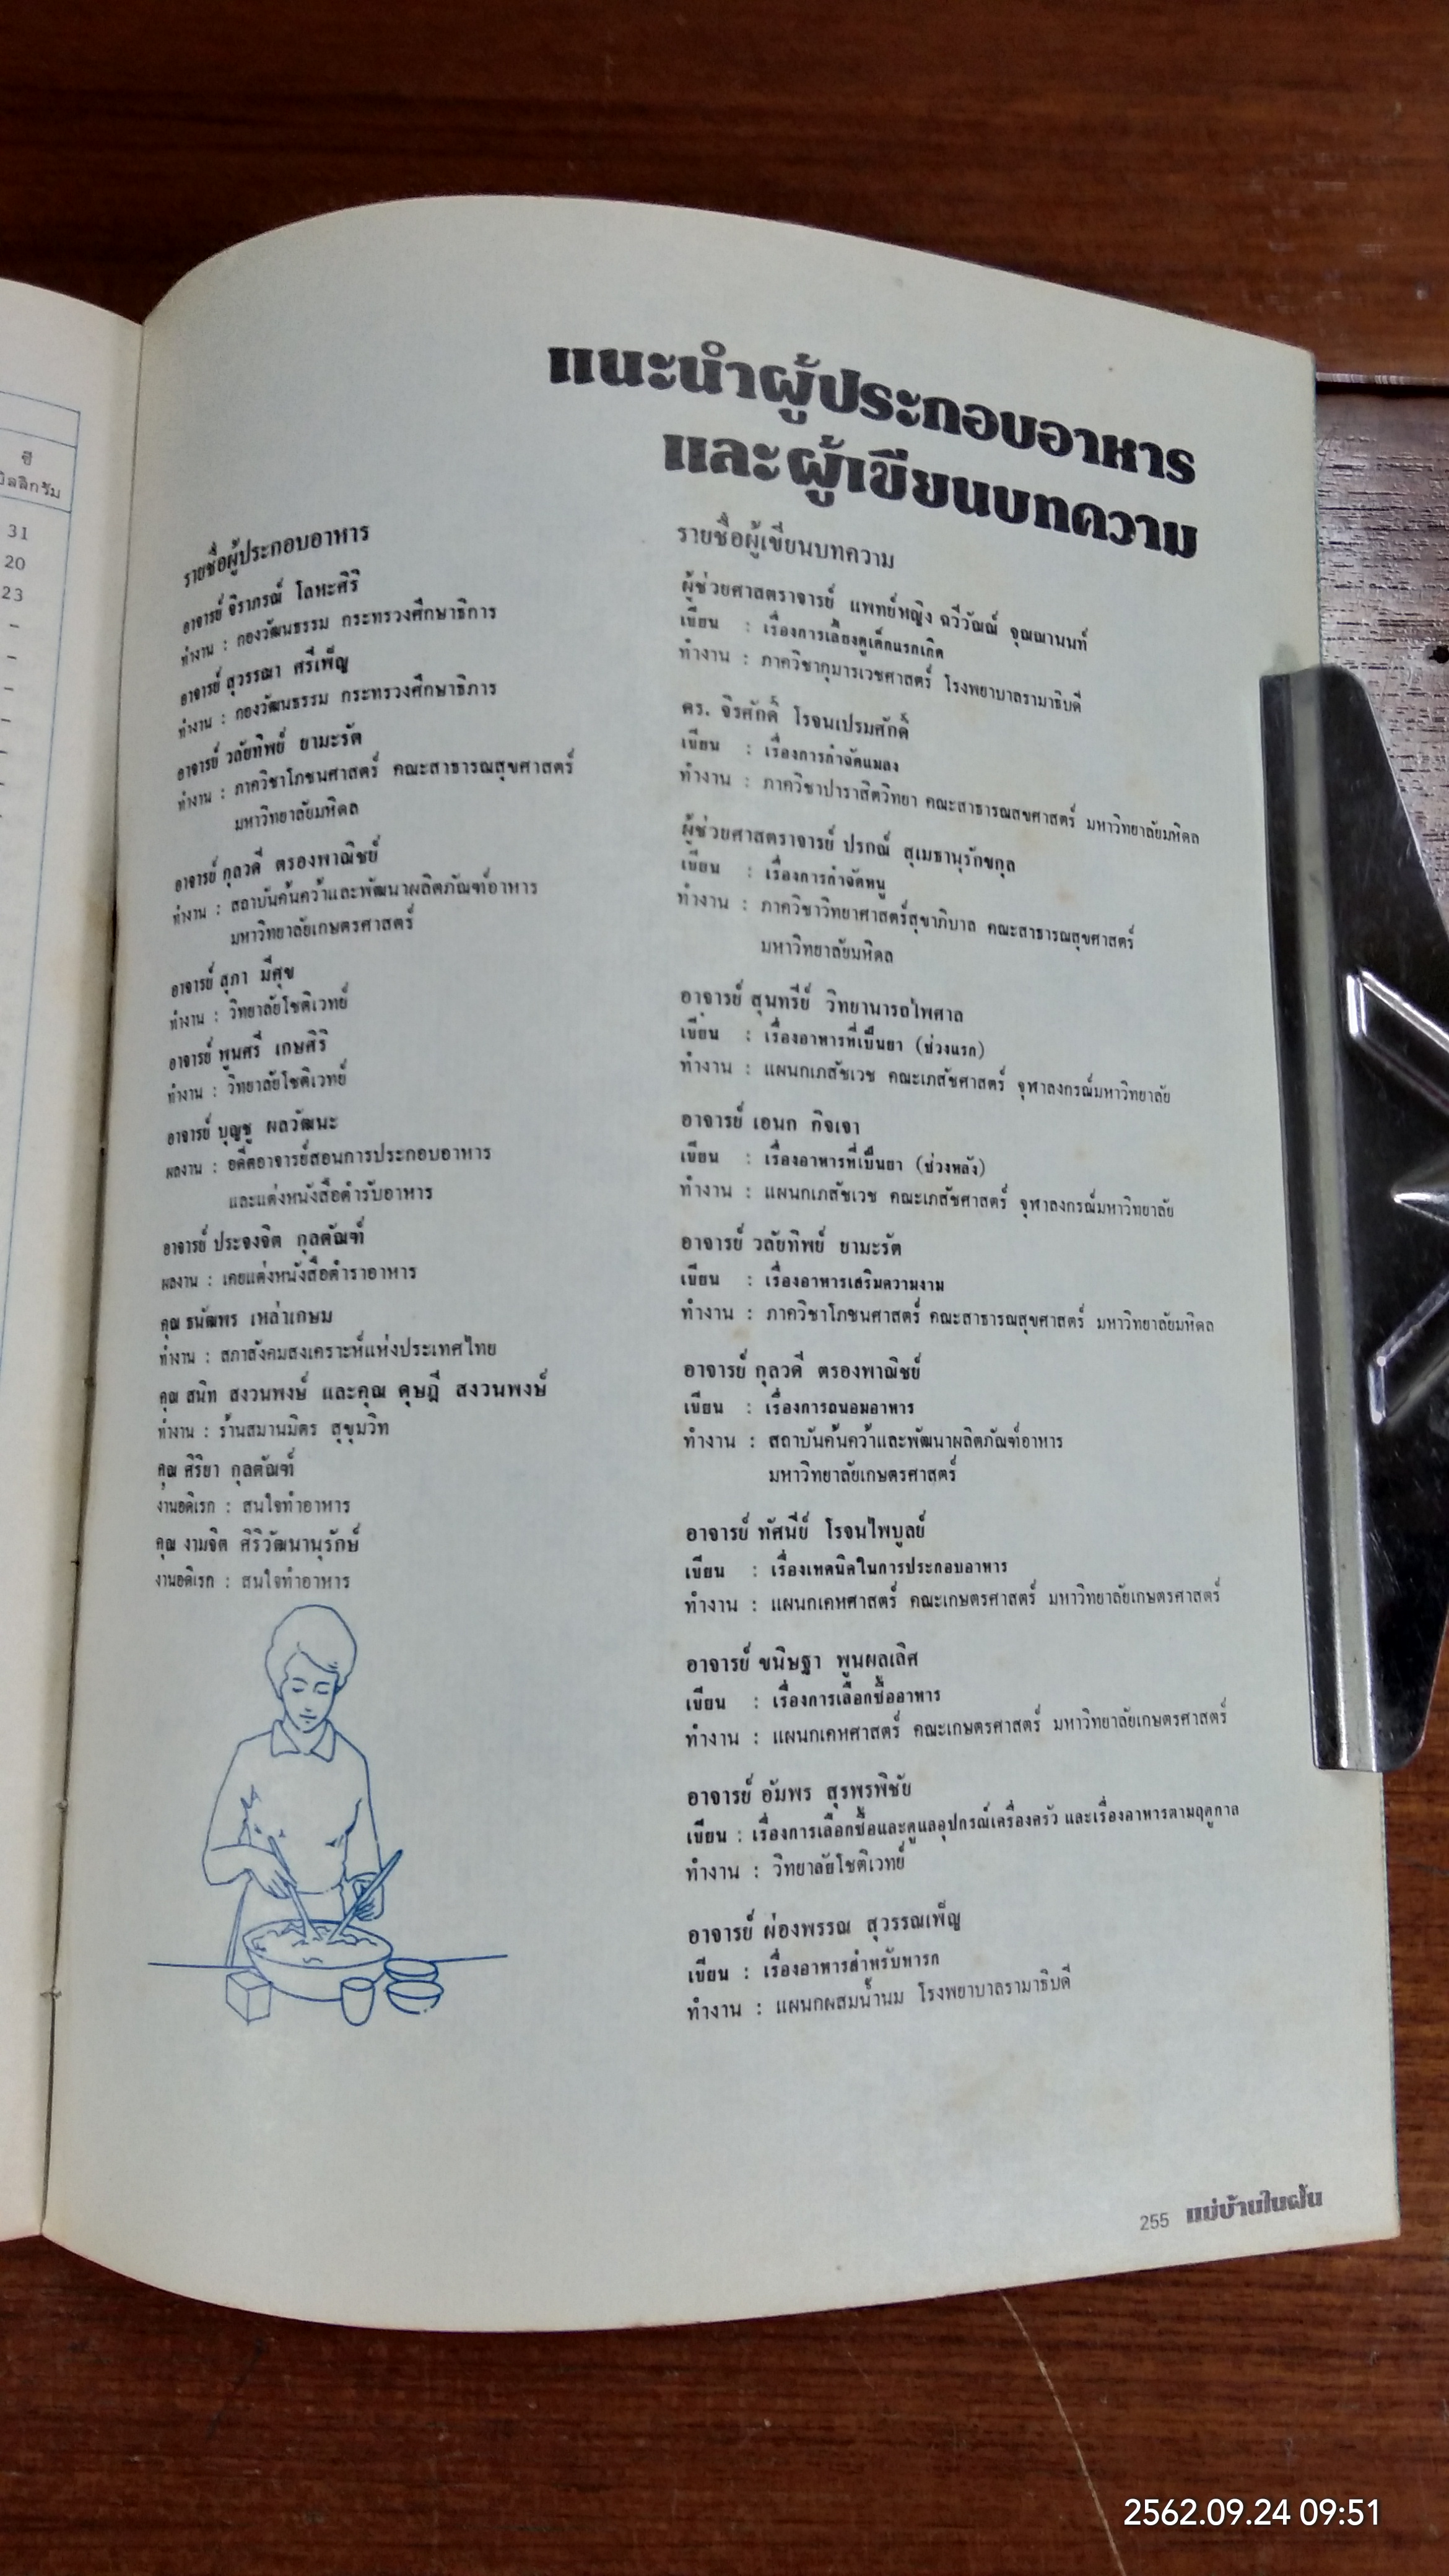 ซี
มิลลิกรัม
31
20
23
–
–
–
–
แนะนำผู้ประกอบอาหาร
และผู้เขียนบทความ
รายชื่อผู้ประกอบอาหาร
อาจารย์ จิราภรณ์ โลหะศิริ
ทำงาน : กองวัฒนธรรม กระทรวงศึกษาธิการ
อาจารย์ สุวรรณา ศรีเพ็ญ
ทำงาน : กองวัฒนธรรม กระทรวงศึกษาธิการ
อาจารย์ วลัยทิพย์ ยามะรัต
ทำงาน : ภาควิชาโภชนศาสตร์ คณะสาธารณสุขศาสตร์
มหาวิทยาลัยมหิดล
อาจารย์ กุลวดี ตรองพาณิชย์
ทำงาน : สถาบันค้นคว้าและพัฒนาผลิตภัณฑ์อาหาร
มหาวิทยาลัยเกษตรศาสตร์
อาจารย์ สุภา มีศุข
ทำงาน : วิทยาลัยโชติเวทย์
อาจารย์ พูนศรี เกษศิริ
ทำงาน : วิทยาลัยโชติเวทย์
อาจารย์ บุญชู ผลวัฒนะ
ผลงาน : อดีตอาจารย์สอนการประกอบอาหาร
และแต่งหนังสือตำรับอาหาร
อาจารย์ ประจงจิต กุลตัณฑ์
ผลงาน : เคยแต่งหนังสือตำราอาหาร
คุณ ธนัฒพร เหล่าเกษม
ทำงาน : สภาสังคมสงเคราะห์แห่งประเทศไทย
คุณ สนิท สงวนพงษ์ และคุณ ดุษฎี สงวนพงษ์
ทำงาน : ร้านสมานมิตร สุขุมวิท
คุณ ศิริยา กุลตัณฑ์
งานอดิเรก : สนใจทำอาหาร
คุณ งามจิต ศิริวัฒนานุรักษ์
งานอดิเรก : สนใจทำอาหาร
รายชื่อผู้เขียนบทความ
ผู้ช่วยศาสตราจารย์ แพทย์หญิง ฉวีวัณณ์ จุณณานนท์
เขียน : เรื่องการเลี้ยงดูเด็กแรกเกิด
ทำงาน : ภาควิชากุมารเวชศาสตร์ โรงพยาบาลรามาธิบดี
ดร. จิรศักดิ์ โรจนเปรมศักดิ์
เขียน : เรื่องการกำจัดแมลง
ทำงาน : ภาควิชาปาราสิตวิทยา คณะสาธารณสุขศาสตร์ มหาวิทยาลัยมหิดล
ผู้ช่วยศาสตราจารย์ ปรกณ์ สุเมธานุรักขกุล
เขียน : เรื่องการกำจัดหนู
ทำงาน : ภาควิชาวิทยาศาสตร์สุขาภิบาล คณะสาธารณสุขศาสตร์
มหาวิทยาลัยมหิดล
อาจารย์ สุนทรีย์ วิทยานารถไพศาล
เขียน : เรื่องอาหารที่เป็นยา (ช่วงแรก)
ทำงาน : แผนกเภสัชเวช คณะเภสัชศาสตร์ จุฬาลงกรณ์มหาวิทยาลัย
อาจารย์ เอนก กิจเจา
เขียน : เรื่องอาหารที่เป็นยา (ช่วงหลัง)
ทำงาน : แผนกเภสัชเวช คณะเภสัชศาสตร์ จุฬาลงกรณ์มหาวิทยาลัย
อาจารย์ วลัยทิพย์ ยามะรัต
เขียน : เรื่องอาหารเสริมความงาม
ทำงาน : ภาควิชาโภชนศาสตร์ คณะสาธารณสุขศาสตร์ มหาวิทยาลัยมหิดล
อาจารย์ กุลวดี ตรองพาณิชย์
เขียน : เรื่องการถนอมอาหาร
ทำงาน : สถาบันค้นคว้าและพัฒนาผลิตภัณฑ์อาหาร
มหาวิทยาลัยเกษตรศาสตร์
อาจารย์ ทัศนีย์ โรจนไพบูลย์
เขียน : เรื่องเทคนิคในการประกอบอาหาร
ทำงาน : แผนกเคหศาสตร์ คณะเกษตรศาสตร์ มหาวิทยาลัยเกษตรศาสตร์
อาจารย์ ขนิษฐา พูนผลเลิศ
เขียน : เรื่องการเลือกซื้ออาหาร
ทำงาน : แผนกเคหศาสตร์ คณะเกษตรศาสตร์ มหาวิทยาลัยเกษตรศาสตร์
อาจารย์ อัมพร สุรพรพิชัย
เขียน : เรื่องการเลือกซื้อและดูแลอุปกรณ์เครื่องครัว และเรื่องอาหารตามฤดูกาล
ทำงาน : วิทยาลัยโชติเวทย์
อาจารย์ ผ่องพรรณ สุวรรณเพ็ญ
เขียน : เรื่องอาหารสำหรับทารก
ทำงาน : แผนกผสมน้ำนม โรงพยาบาลรามาธิบดี
255 แม่บ้านในฝัน
2562.09.24 09:51